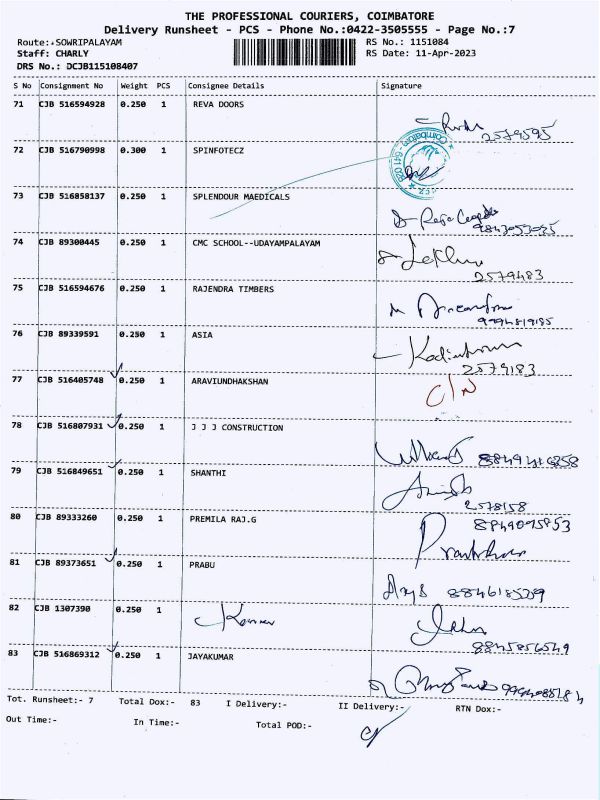 THE PROFESSIONAL COURIERS, COIMBATORE
Delivery Runsheet - PCS - Phone No.:0422-3505555 - Page No.:7
Route:-SOWRIPALAYAM RS No.: 1151084
Staff: CHARLY RS Date: 11-Apr-2023
DRS No.: DCJB115108407
S No Consignment No Weight PCS Consignee Details Signature
71 CJB 516594928 0.250 1 REVA DOORS
2579595
72 CJB 516790998 0.300 1 SPINFOTECZ
Coimbatore - 641 0
73 CJB 516858137 0.250 1 SPLENDOUR MAEDICALS
74 CJB 89300445 0.250 1 CMC SCHOOL--UDAYAMPALAYAM
2579483
75 CJB 516594676 0.250 1 RAJENDRA TIMBERS
76 CJB 89339591 0.250 1 ASIA
2579183
77 CJB 516405748 0.250 1 ARAVIUNDHAKSHAN
C/N
78 CJB 516807931 0.250 1 J J J CONSTRUCTION
79 CJB 516849651 0.250 1 SHANTHI
2578158
80 CJB 89333260 0.250 1 PREMILA RAJ.G
81 CJB 89373651 0.250 1 PRABU
82 CJB 1307390 0.250 1
83 CJB 516869312 0.250 1 JAYAKUMAR
Tot. Runsheet:- 7 Total Dox:- 83 I Delivery:- II Delivery:- RTN Dox:-
Out Time:- In Time:- Total POD:-